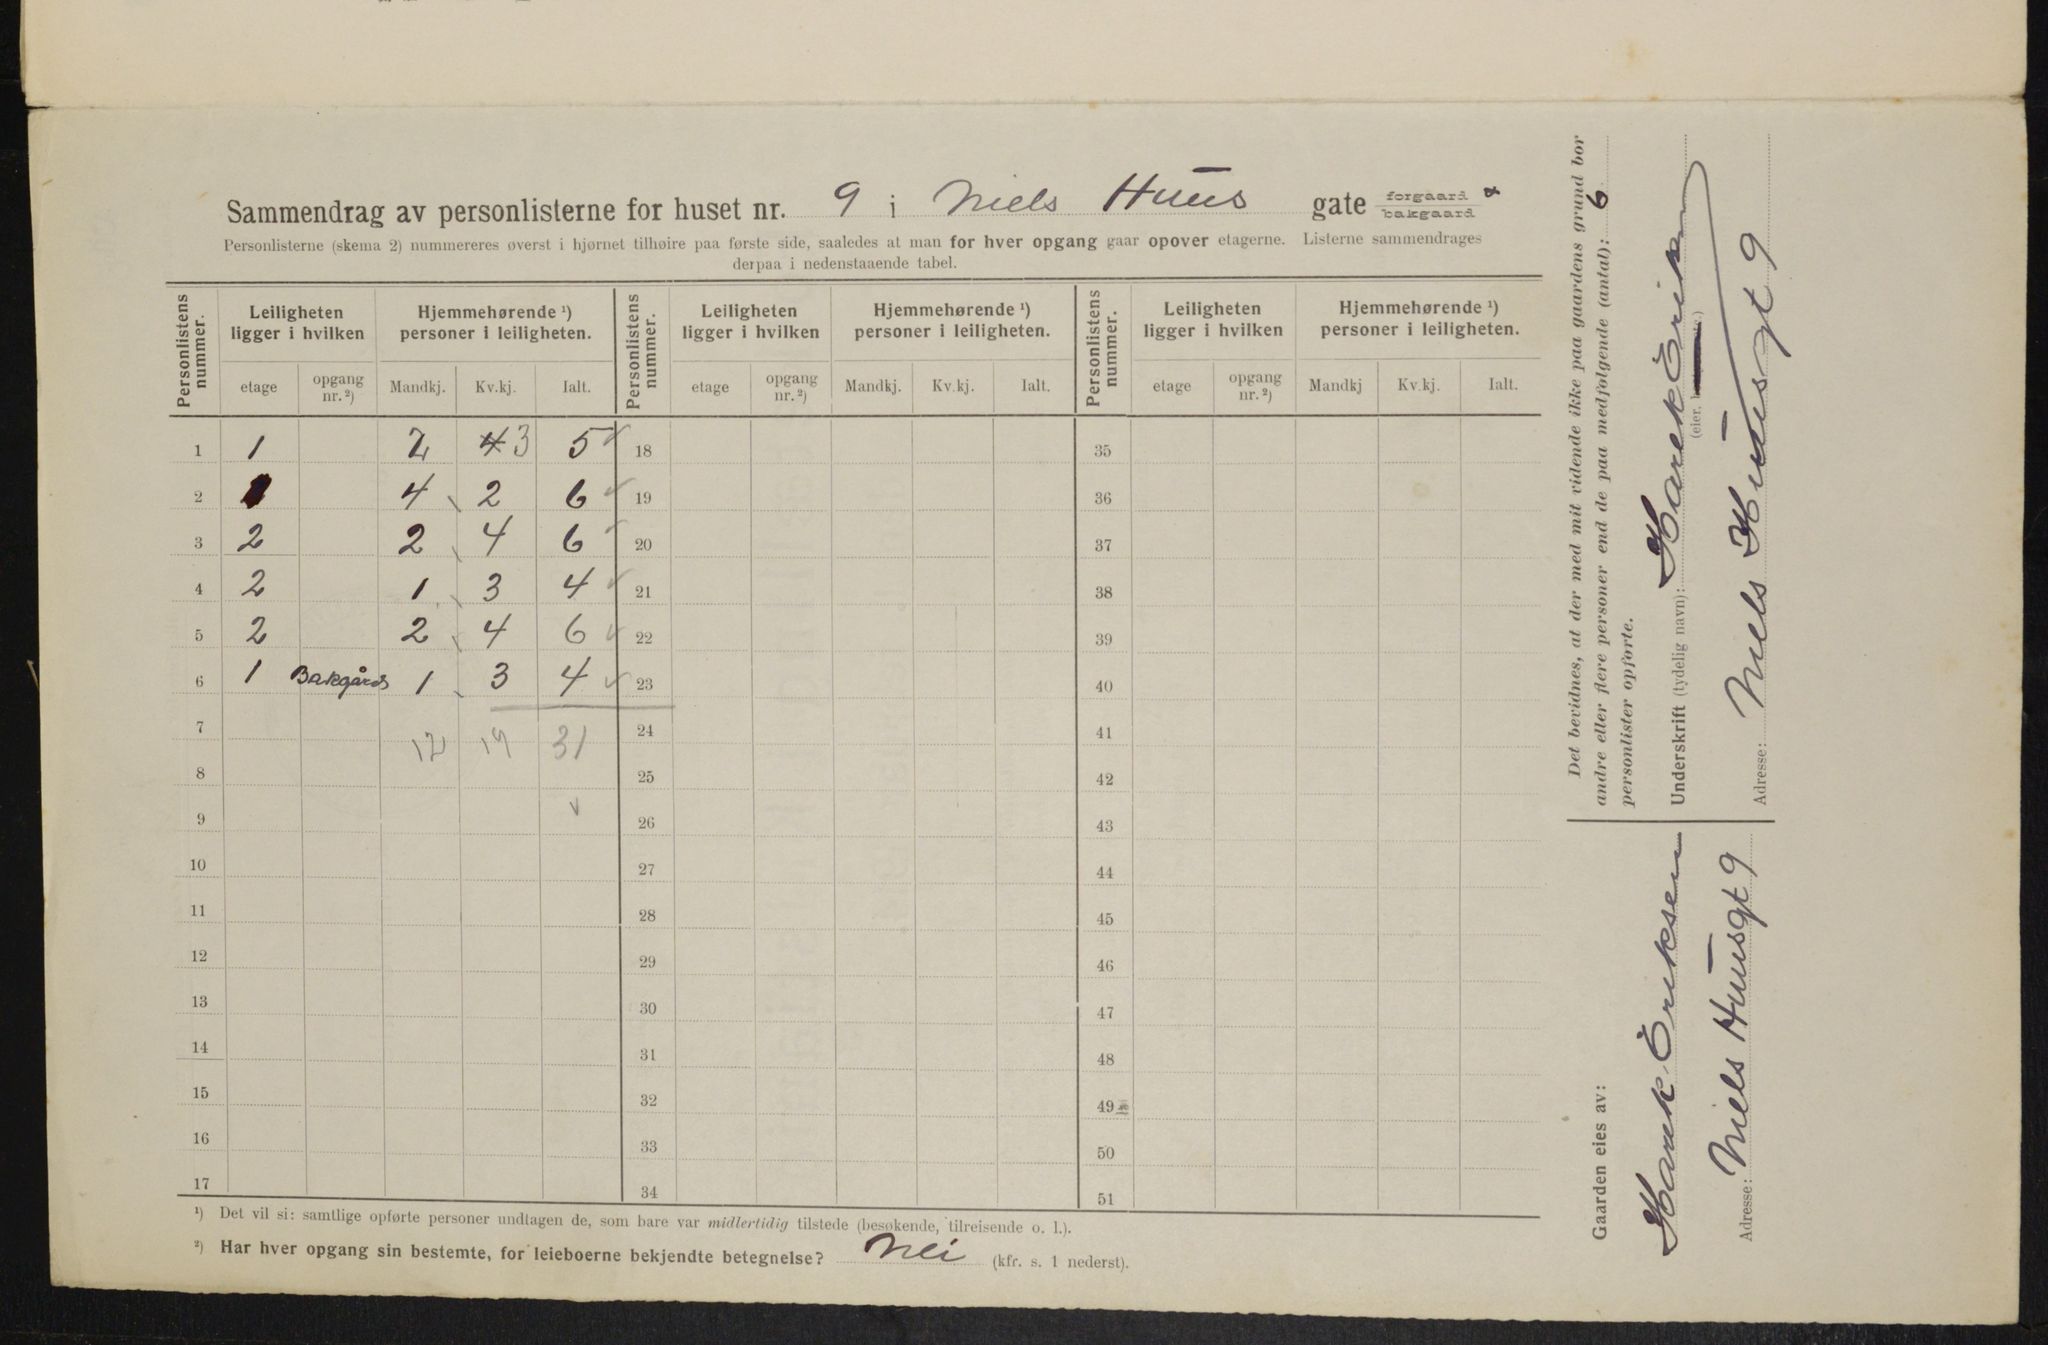 Sammendrag av personlisterne for huset nr. 9 i Niels Huus gate forgaard bakgaard
Personlisterne (skema 2) nummereres øverst i hjørnet tilhøire paa første side, saaledes at man for hver opgang gaar opover etagerne. Listerne sammendrages
derpaa i nedenstaaende tabel.
Personlistens nummer. Leiligheten ligger i hvilken Hjemmehørende ¹) personer i leiligheten. Personlistens nummer. Leiligheten ligger i hvilken Hjemmehørende ¹) personer i leiligheten. Personlistens nummer. Leiligheten ligger i hvilken Hjemmehørende ¹) personer i leiligheten.
etage opgang nr. ²) Mandkj. Kv.kj. Ialt. etage opgang nr. ²) Mandkj. Kv.kj. Ialt. etage opgang nr. ²) Mandkj Kv.kj. Ialt.
1 1 2 4 3 5 18 35
2 4 2 6 19 36
3 2 2 4 6 20 37
4 2 1 3 4 21 38
5 2 2 4 6 22 39
6 1 Bakgård 1 3 4 23 40
7 12 19 31 24 41
8 25 42
9 26 43
10 27 44
11 28 45
12 29 46
13 30 47
14 31 48
15 32 49
16 33 50
17 34 51
¹) Det vil si: samtlige opførte personer undtagen de, som bare var midlertidig tilstede (besøkende, tilreisende o. l.).
²) Har hver opgang sin bestemte, for leieboerne bekjendte betegnelse? Nei (kfr. s. 1 nederst).
Det bevidnes, at der med mit vidende ikke paa gaardens grund bor
andre eller flere personer end de paa medfølgende (antal): 6
personlister opførte.
Underskrift (tydelig navn): Harek Erik
(eier,
Adresse: Niels Huusgt 9
Gaarden eies av:
Harek Eriksen
Adresse: Niels Huusgt 9